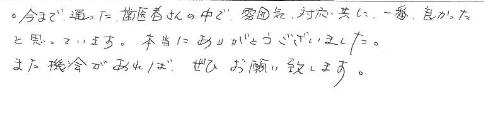 。今まで通った歯医者さんの中で、雰囲気、対応、共に、一番、良かった
と思っています。本当にありがとうございました。
また機会があれば、ぜひお願い致します。